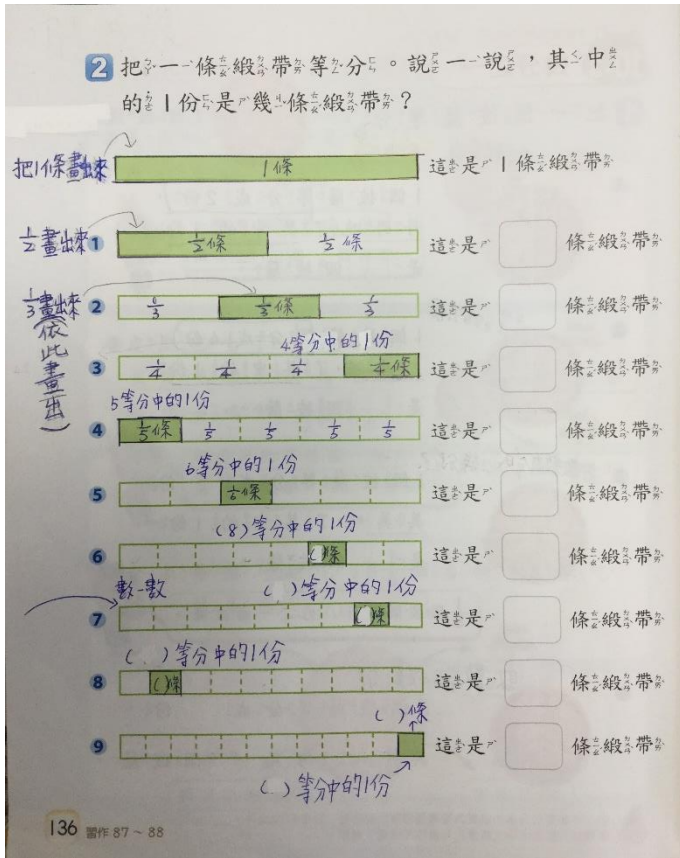 2 把一條緞帶等分。說一說，其中
的1份是幾條緞帶？
把1條畫出來 1條 這是1條緞帶
1/2畫出來 1 1/2條 1/2條 這是 條緞帶
1/3畫出來 2 1/3 1/3條 1/3 這是 條緞帶
(依此畫出)
4等分中的1份
3 1/4 1/4 1/4 1/4條 這是 條緞帶
5等分中的1份
4 1/5條 1/5 1/5 1/5 1/5 這是 條緞帶
6等分中的1份
5 1/6條 這是 條緞帶
(8)等分中的1份
6 ( )條 這是 條緞帶
數一數 ( )等分中的1份
7 ( )條 這是 條緞帶
( )等分中的1份
8 ( )條 這是 條緞帶
( )條
9 這是 條緞帶
( )等分中的1份
136 習作 87～88